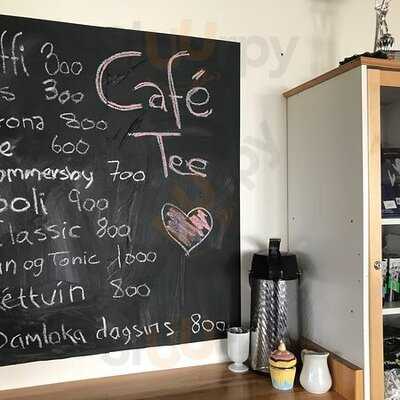 ffi 300
s 300
rona 800
e 600
ommersby 700
poli 900
Classic 800
in og Tonic 1000
éttvín 800
Damloka dagsins 800
Café
Tee